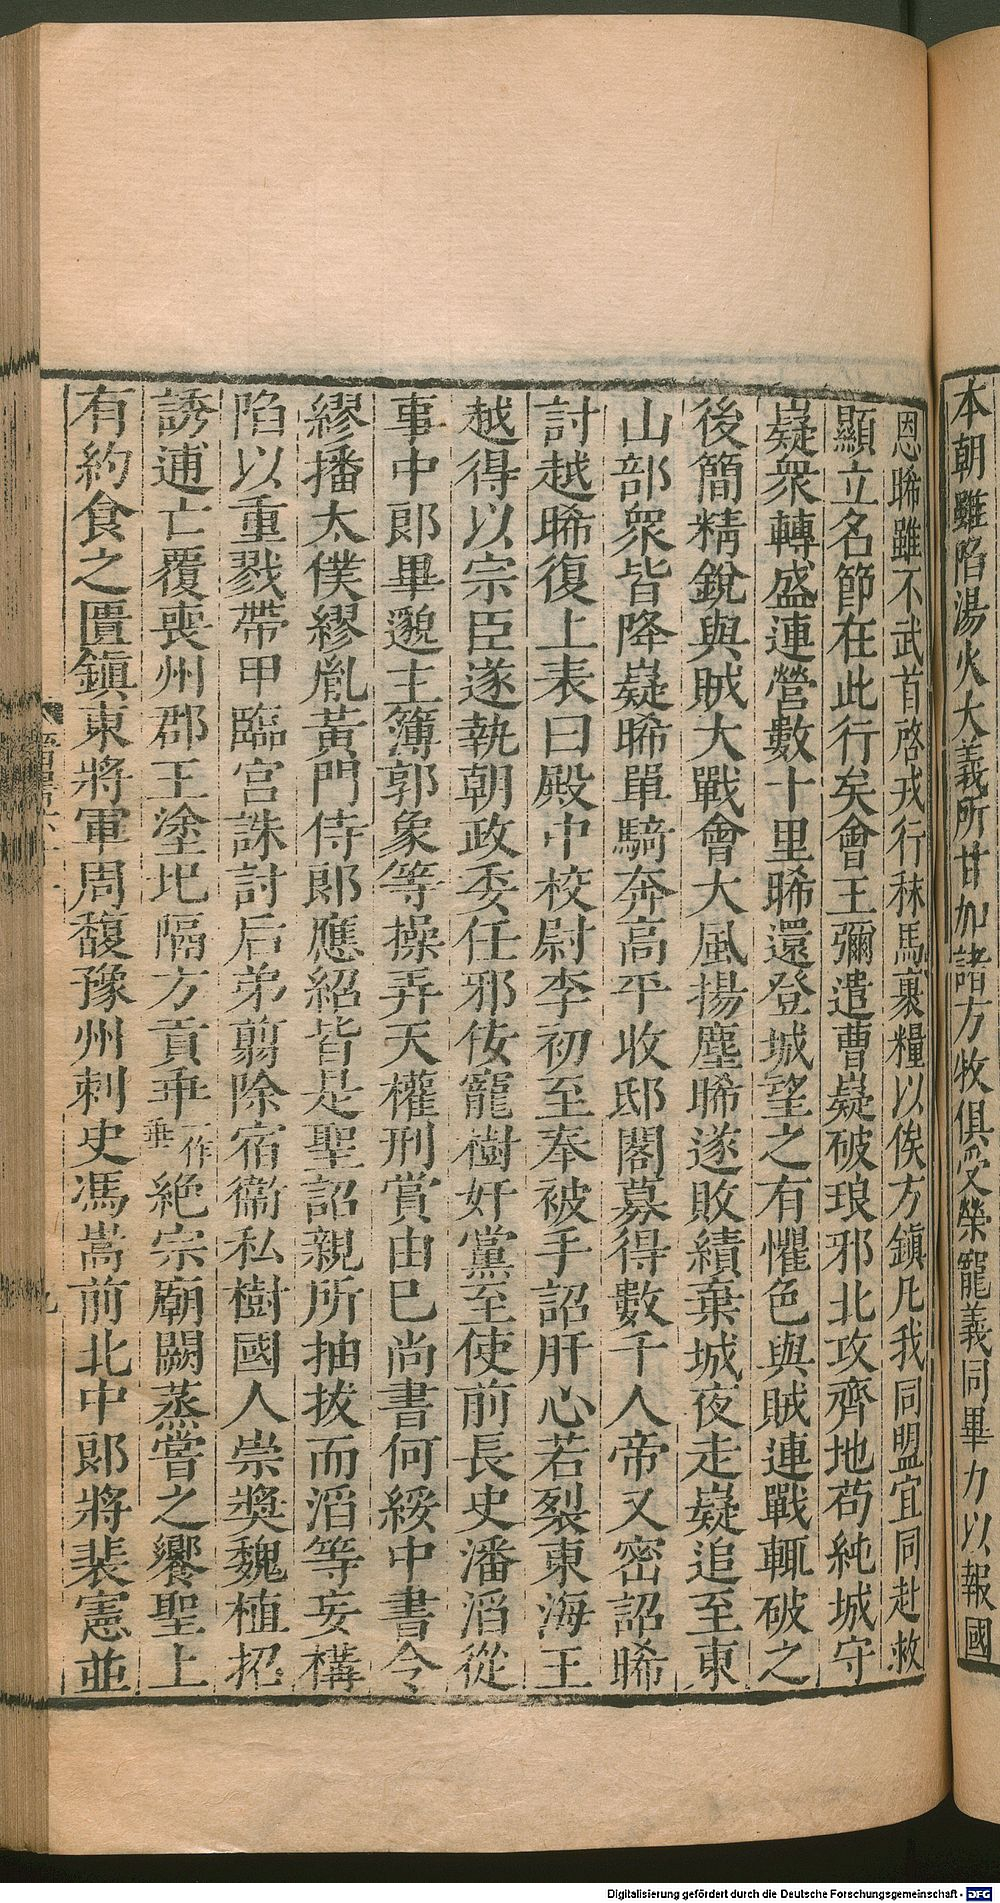 本朝雖陷湯火大義所甘加諸方牧俱受榮寵義同畢力以報國
恩晞雖不武首啓戎行秣馬裹糧以俟方鎮凡我同盟宜同赴救
顯立名節在此行矣會王彌遣曹嶷破琅邪北攻齊地苟純城守
嶷衆轉盛連營數十里晞還登城望之有懼色與賊連戰輒破之
後簡精銳與賊大戰會大風揚塵晞遂敗績棄城夜走嶷追至東
山部衆皆降嶷晞單騎奔高平收邸閣募得數千人帝又密詔晞
討越晞復上表曰殿中校尉李初至奉被手詔肝心若裂東海王
越得以宗臣遂執朝政委任邪佞寵樹奸黨至使前長史潘滔從
事中郎畢邈主簿郭象等操弄天權刑賞由巳尚書何綏中書令
繆播太僕繆胤黃門侍郎應紹皆是聖詔親所抽拔而滔等妄構
陷以重戮帶甲臨宮誅討后弟翦除宿衞私樹國人崇獎魏植招
誘逋亡覆喪州郡王塗圯隔方貢乖一作垂絶宗廟闕蒸嘗之饗聖上
有約食之匱鎮東將軍周馥豫州刺史馮嵩前北中郎將裴憲並
九
Digitalisierung gefördert durch die Deutsche Forschungsgemeinschaft - DFG